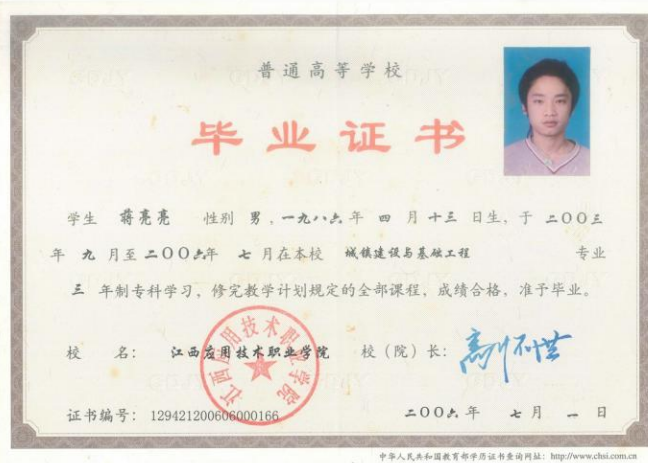 普通高等学校
毕业证书
学生 蒋亮亮 性别 男，一九八六年 四 月十三 日生，于 二〇〇三
年 九 月至二〇〇六年 七 月在本校 城镇建设与基础工程 专业
三 年制专科学习，修完教学计划规定的全部课程，成绩合格，准予毕业。
校 名： 江西应用技术职业学院 校（院）长：
江西应用技术职业学院
证书编号： 129421200606000166 二〇〇六 年 七 月 一 日
中华人民共和国教育部学历证书查询网址：http://www.chsi.com.cn